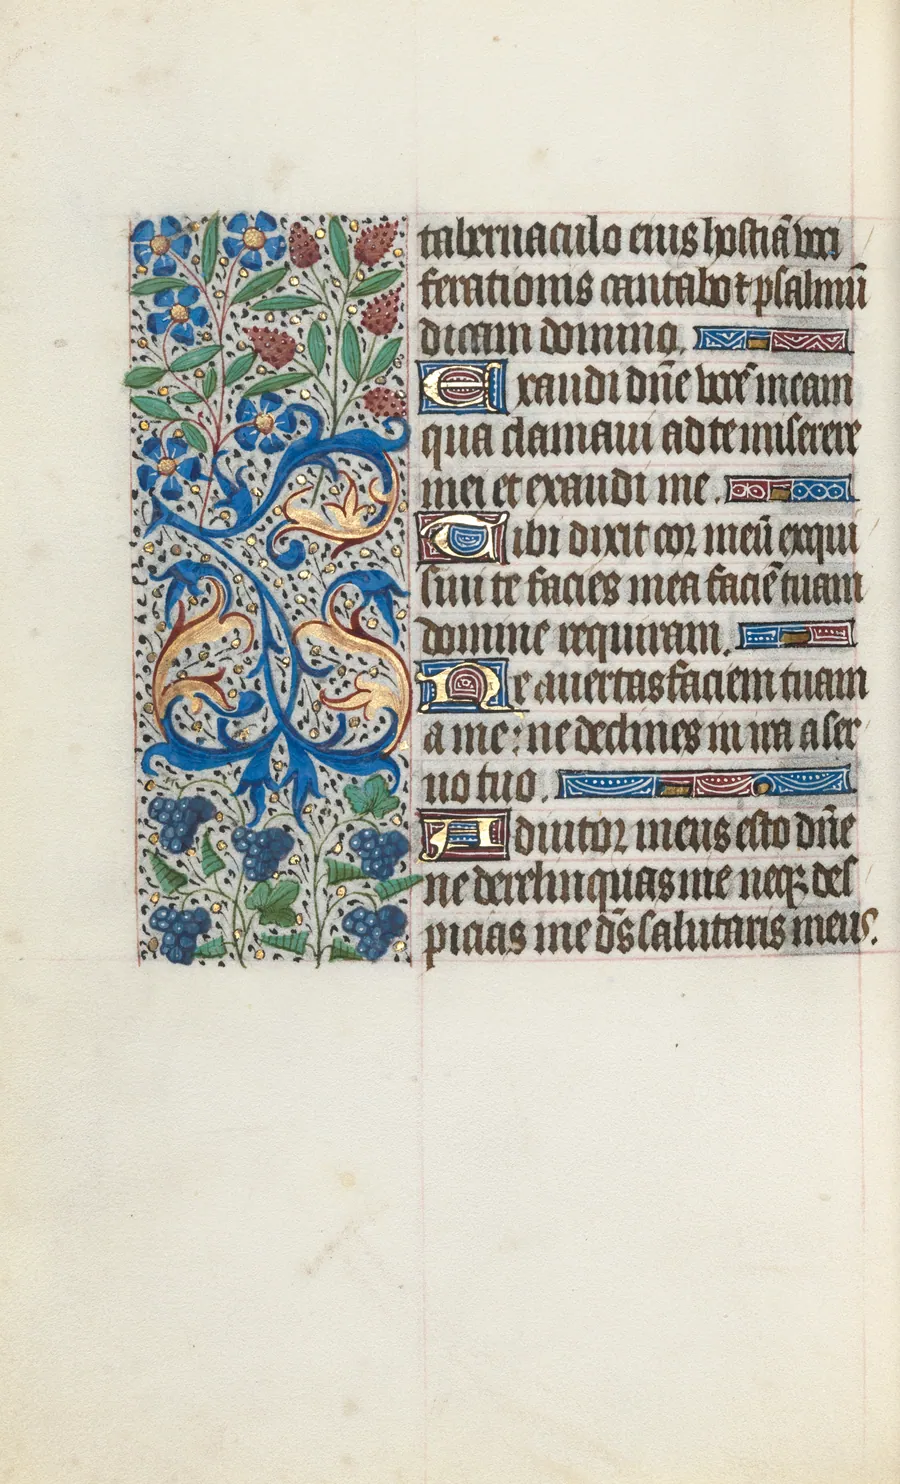 tabernaculo eius hostiā voci
ferationis cantabo ⁊ psalmū
dicam domino.
Exaudi dn̄e vocē meam
qua clamavi ad te miserere
mei et exaudi me.
Tibi dixit cor meū exqui
sivit te facies mea faciē tuam
domine requiram.
Ne avertas faciem tuam
a me: ne declines in ira a ser
vo tuo.
Adiutor meus esto dn̄e
ne derelinquas me neqꝫ des
picias me ds̄ salutaris meus.